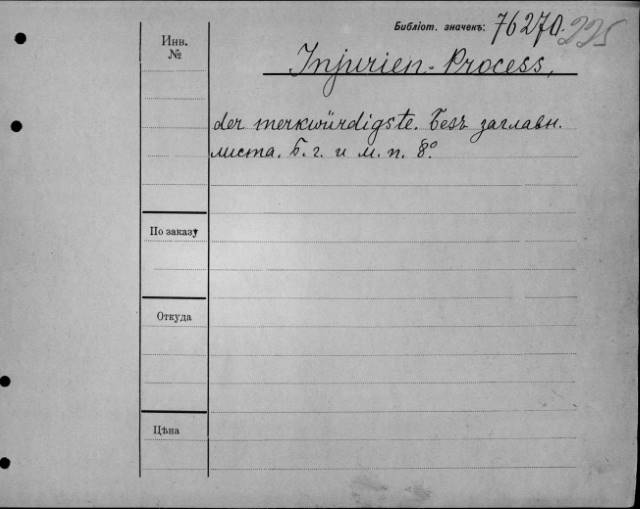 Библіот. значекъ: 76270. 225
Инв.
№
Injurien-Process,
der merkwürdigste. Безъ заглавн.
листа. Б. г. и м. п. 8º.
По заказу
Откуда
Цѣна